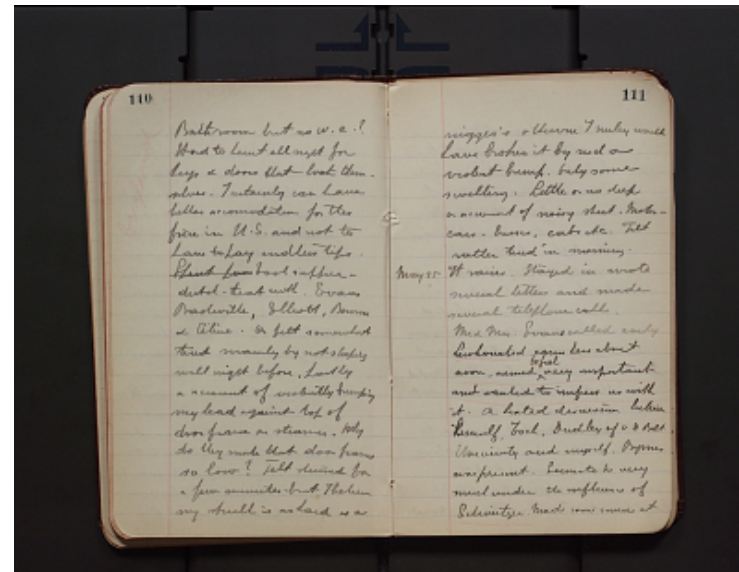 110
Bath room but no w.c.!
Had to hunt all night for
keys & doors that lock them-
selves. I certainly can have
better accomodation for this
price in U.S. and not to
have to pay endless tips.
Spent
dutch-treat with Evans
Baskerville, Elliott,
& Celine. felt somewhat
tired mainly by not sleeping
well night before, partly
on account of violently bumping
my head against top of
door frame on steamer. Why
do they make that door frame
so low? Felt dazed for
a few minutes but I believe
my skull is as hard as a
111
nigger's otherwise I surely would
have broken it by such a
violent bump. Only some
swelling. Little or no sleep
on account of noisy street. Motor-
cars - buses, cabs etc. Felt
rather tired in morning.
May 25. It rains. Stayed in wrote
several letters and made
several telephone calls.
Mrs. Evans called early
about
noon, very important
and wanted to impress us with
it. A heated discussion between
himself, Dudley of
University and myself.
was present. Seems to be very
much under the influence of
Schweitzer. Made some at